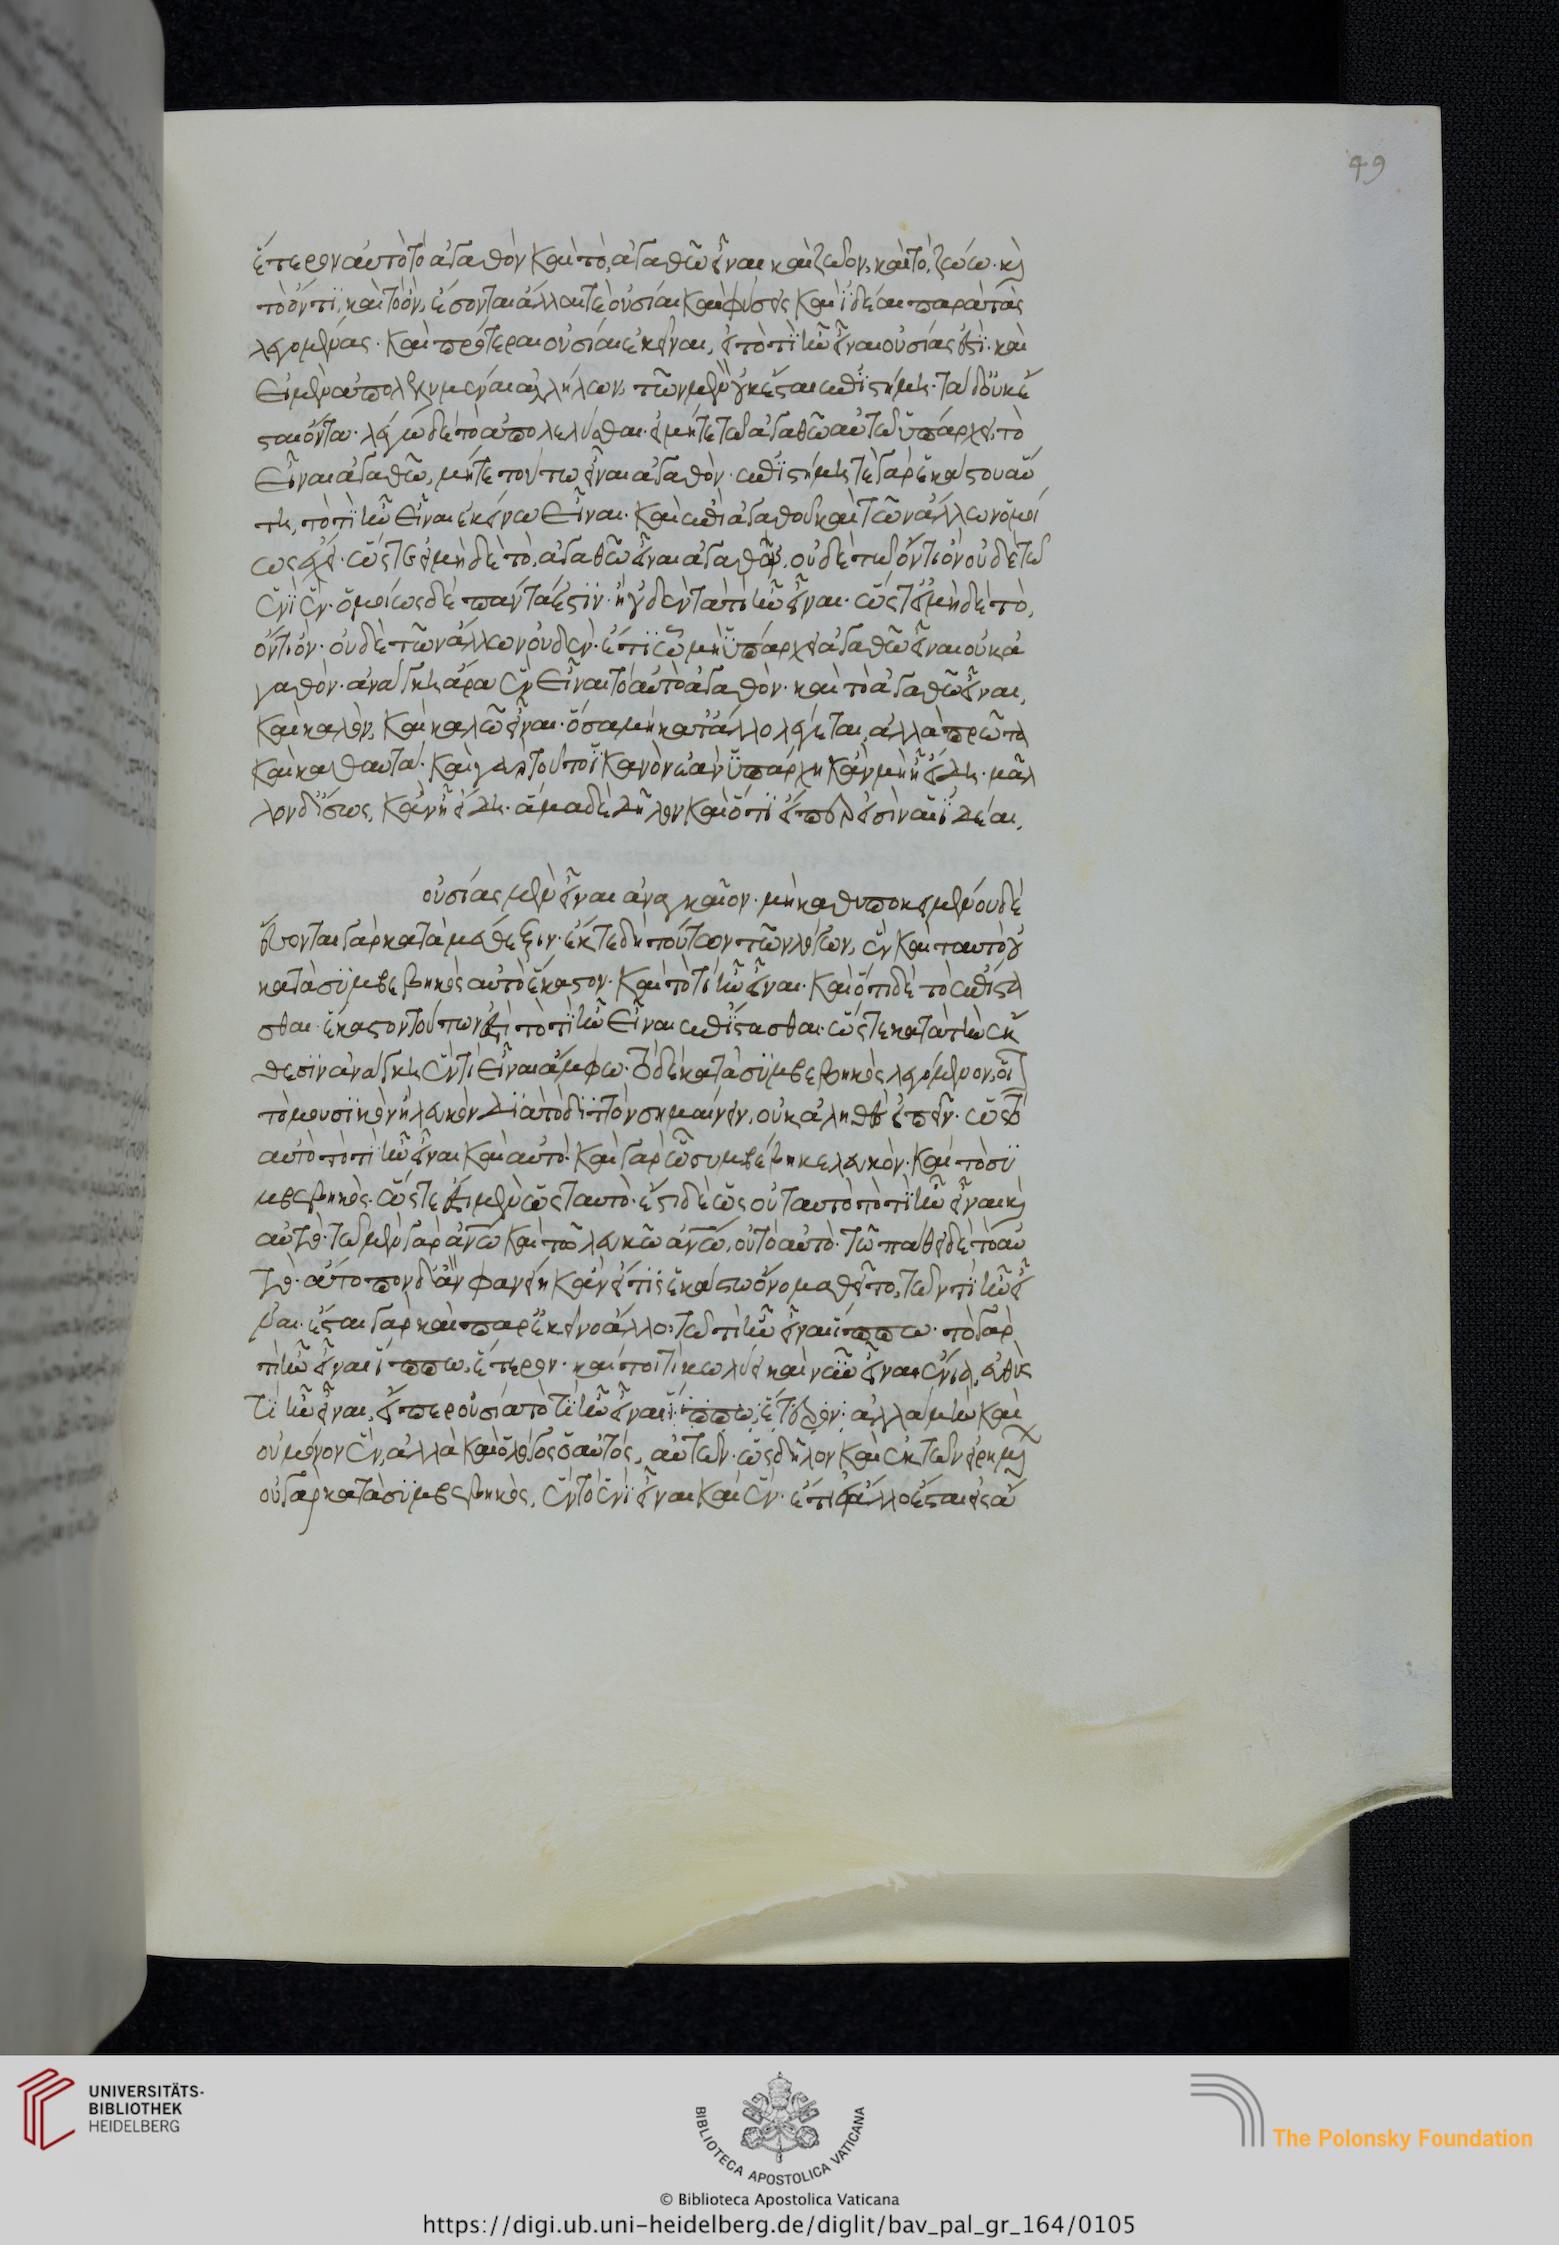 49
ἕτερον αὐτὸ τὸ ἀγαθὸν καὶ τὸ, ἀγαθῶ εἶναι καὶ ζῶον, καὶ τὸ, ζώω· κὶ
τὸ ὄντϊ, καὶ τὸ ὄν, ἔσονται ἄλλαι τὲ οὐσίαι καὶ φύσεις καὶ ἰδέαι παρὰ τὰς
λεγομένας· καὶ πρότεραι οὐσίαι ἐκεῖναι, εἰ τὸ τὶ ἦν εἶναι οὐσίας ἐστὶ· καὶ
εἰ μὲν ἀπολελυμέναι ἀλλήλων, τῶν μὲν οὐκ ἔσται ἐπϊστήμη· τὰ δ' οὐκ ἔ
σται ὄντα· λέγω δὲ τὸ ἀπολελύσθαι· εἰ μήτε τῶ ἀγαθῶ αὐτῶ ὑπάρχει, τὸ
εἶναι ἀγαθῶ, μήτε τούτω εἶναι ἀγαθόν· ἐπϊστήμη τὲ γὰρ ἑκάστου αὕ
τη, τὸ τὶ ἦν εἶναι ἐκείνω εἶναι· καὶ ἐπὶ ἀγαθοῦ καὶ τῶν ἄλλων ὁμοί
ως ἔχει· ὥστε εἰ μὴ δὲ τὸ, ἀγαθῶ εἶναι ἀγαθὸν, οὐδὲ τὸ ὄντι ὂν οὐδὲ τῶ
ἑνὶ ἕν· ὁμοίως δὲ πάντα ἐστϊν· ἢ οὐδὲν τὰ τὶ ἦν εἶναι· ὥστ' εἰ μὴ δὲ τὸ,
ὄντι ὂν· οὐδὲ τῶν ἄλλων οὐδέν· ἔτι ὧ μὴ ὑπάρχει ἀγαθῶ εἶναι οὐκ ἀ
γαθόν· ἀνάγκη ἄρα ἓν εἶναι τὸ αὐτὸ ἀγαθὸν· καὶ τὸ ἀγαθῶ εἶναι,
καὶ καλὸν, καὶ καλῶ εἶναι· ὅσα μὴ κατ' ἄλλο λέγεται, ἀλλὰ πρῶτα
καὶ καθ' αυτά· καὶ γὰρ τοῦτο ἱκανὸν ἐὰν ὑπάρχη κἂν μὴ ἦ εἴδη· μᾶλ
λον δ' ἴσως, κἂν ἦ εἴδη· ἅμα δὲ δῆλον καὶ ὅτι εἴπερ εἰσὶν αἱ ἰδέαι,
οὐσίας μὲν εἶναι ἀναγκαῖον· μὴ καθ υποκειμένου δέ
ἔσονται γὰρ κατὰ μέθεξιν· ἔκ τε δὴ τούτων τῶν λόγων, ἓν καὶ ταυτὸ οὐ
κατὰ συμβεβηκὸς αὐτὸ ἕκαστον· καὶ τὸ τὶ ἦν εἶναι· καὶ ὅτι δὲ τὸ ἐπίστα
σθαι· ἕκαστον τοῦτων ἐστὶ τὸ τὶ ἦν εἶναι ἐπϊστασθαι· ὥστε κατὰ τὴν ἔκ
θεσϊν ἀνάγκη ἕν τι εἶναι ἄμφω· τὸ δὲ κατὰ συμβεβηκὸς λεγόμενον, οἷον
τὸ μουσϊκὸν ἢ λευκὸν διὰ τὸ διττὸν σημαίνειν, οὐκ ἀληθὲς εἰπεῖν· ὡς τὸ
αὐτὸ τὸ τὶ ἦν εἶναι καὶ αὐτό· καὶ γὰρ ὧ συμβέβηκε λευκὸν· καὶ τὸ συ
μβεβηκός· ὥστε ἔστι μὲν ὡς ταυτὸ· ἔστι δὲ ὡς οὐ ταυτὸ τὸ τὶ ἦν εἶναι κὶ
αὐτό· τῶ μὲν γὰρ ἀνω καὶ τῶ λευκῶ ἀνω, οὐ τὸ αὐτὸ· τῶ πάθει δὲ τὸ αὐ
τό· ἄτοπον δ' ἂν φανείη κἂν εἴ τις ἑκάστω ὄνομα θεῖτο, τῶν τὶ ἦν εἶ
ναι· ἔσται γὰρ καὶ παρ' ἐκεῖνο ἄλλο· τῶ τὶ ἦν εἶναι ἵππω· τὸ γὰρ
τὶ ἦν εἶναι ἵππω, ἕτερον· καί τοι τὶ κωλύει καὶ νῦν εἶναι ἔνια, εὐθὺς
τὶ ἦν εἶναι, εἴπερ οὐσία τὸ τὶ ἦν εἶναι ἵππω, ἕτερον· ἀλλὰ μὴν καὶ
οὐ μόνον ἓν, ἀλλὰ καὶ ὁ λόγος ὁ αὐτός, αὐτῶν· ὡς δῆλον καὶ ἐκ τῶν εἰρημέν
οὐ γὰρ κατὰ συμβεβηκὸς, ἓν τὸ ἑνὶ εἶναι καὶ ἕν· ἔτι εἰ ἄλλο ἔσται εἰς ἄ
UNIVERSITÄTS-
BIBLIOTHEK
HEIDELBERG
BIBLIOTECA APOSTOLICA VATICANA
The Polonsky Foundation
© Biblioteca Apostolica Vaticana
https://digi.ub.uni-heidelberg.de/diglit/bav_pal_gr_164/0105